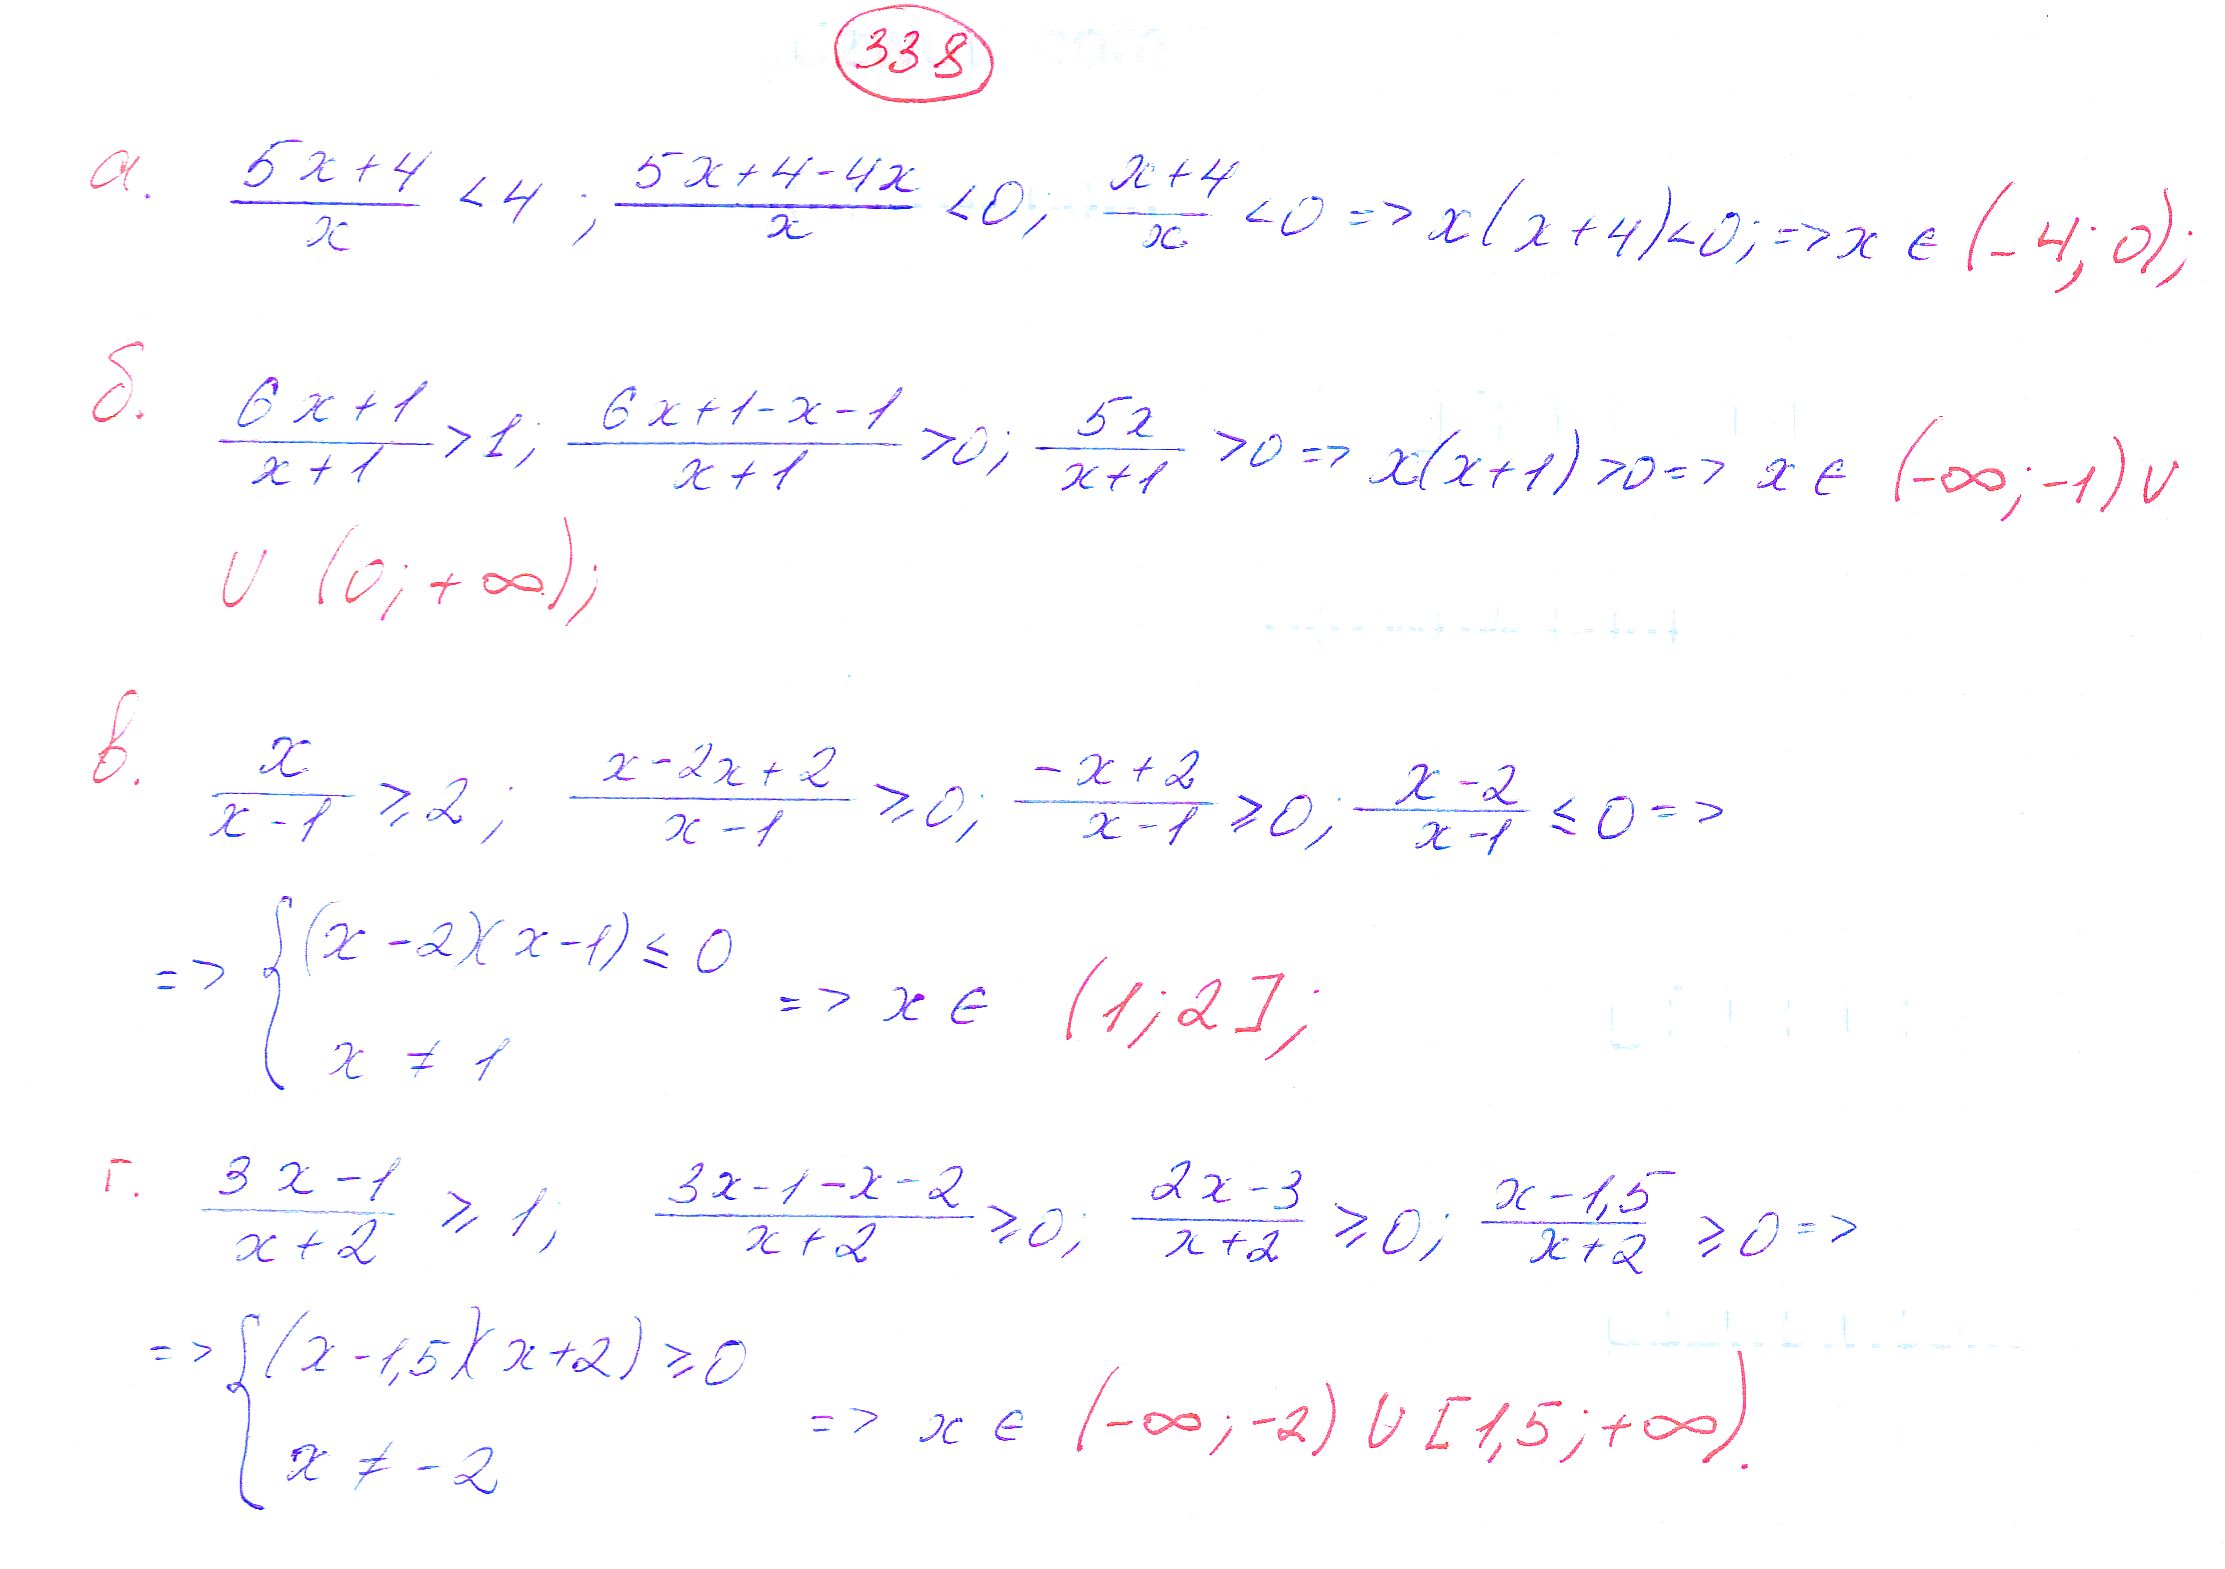 338
а. (5x+4)/x < 4; (5x+4-4x)/x < 0; (x+4)/x < 0 => x(x+4)<0; => x ∈ (-4; 0);
б. (6x+1)/(x+1) > 1; (6x+1-x-1)/(x+1) > 0; 5x/(x+1) > 0 => x(x+1)>0 => x ∈ (-∞; -1) ∪
∪ (0; +∞);
в. x/(x-1) ≥ 2; (x-2x+2)/(x-1) ≥ 0; (-x+2)/(x-1) ≥ 0; (x-2)/(x-1) ≤ 0 =>
=> { (x-2)(x-1) ≤ 0
x ≠ 1 => x ∈ (1; 2];
г. (3x-1)/(x+2) ≥ 1; (3x-1-x-2)/(x+2) ≥ 0; (2x-3)/(x+2) ≥ 0; (x-1,5)/(x+2) ≥ 0 =>
=> { (x-1,5)(x+2) ≥ 0
x ≠ -2 => x ∈ (-∞; -2) ∪ [1,5; +∞).